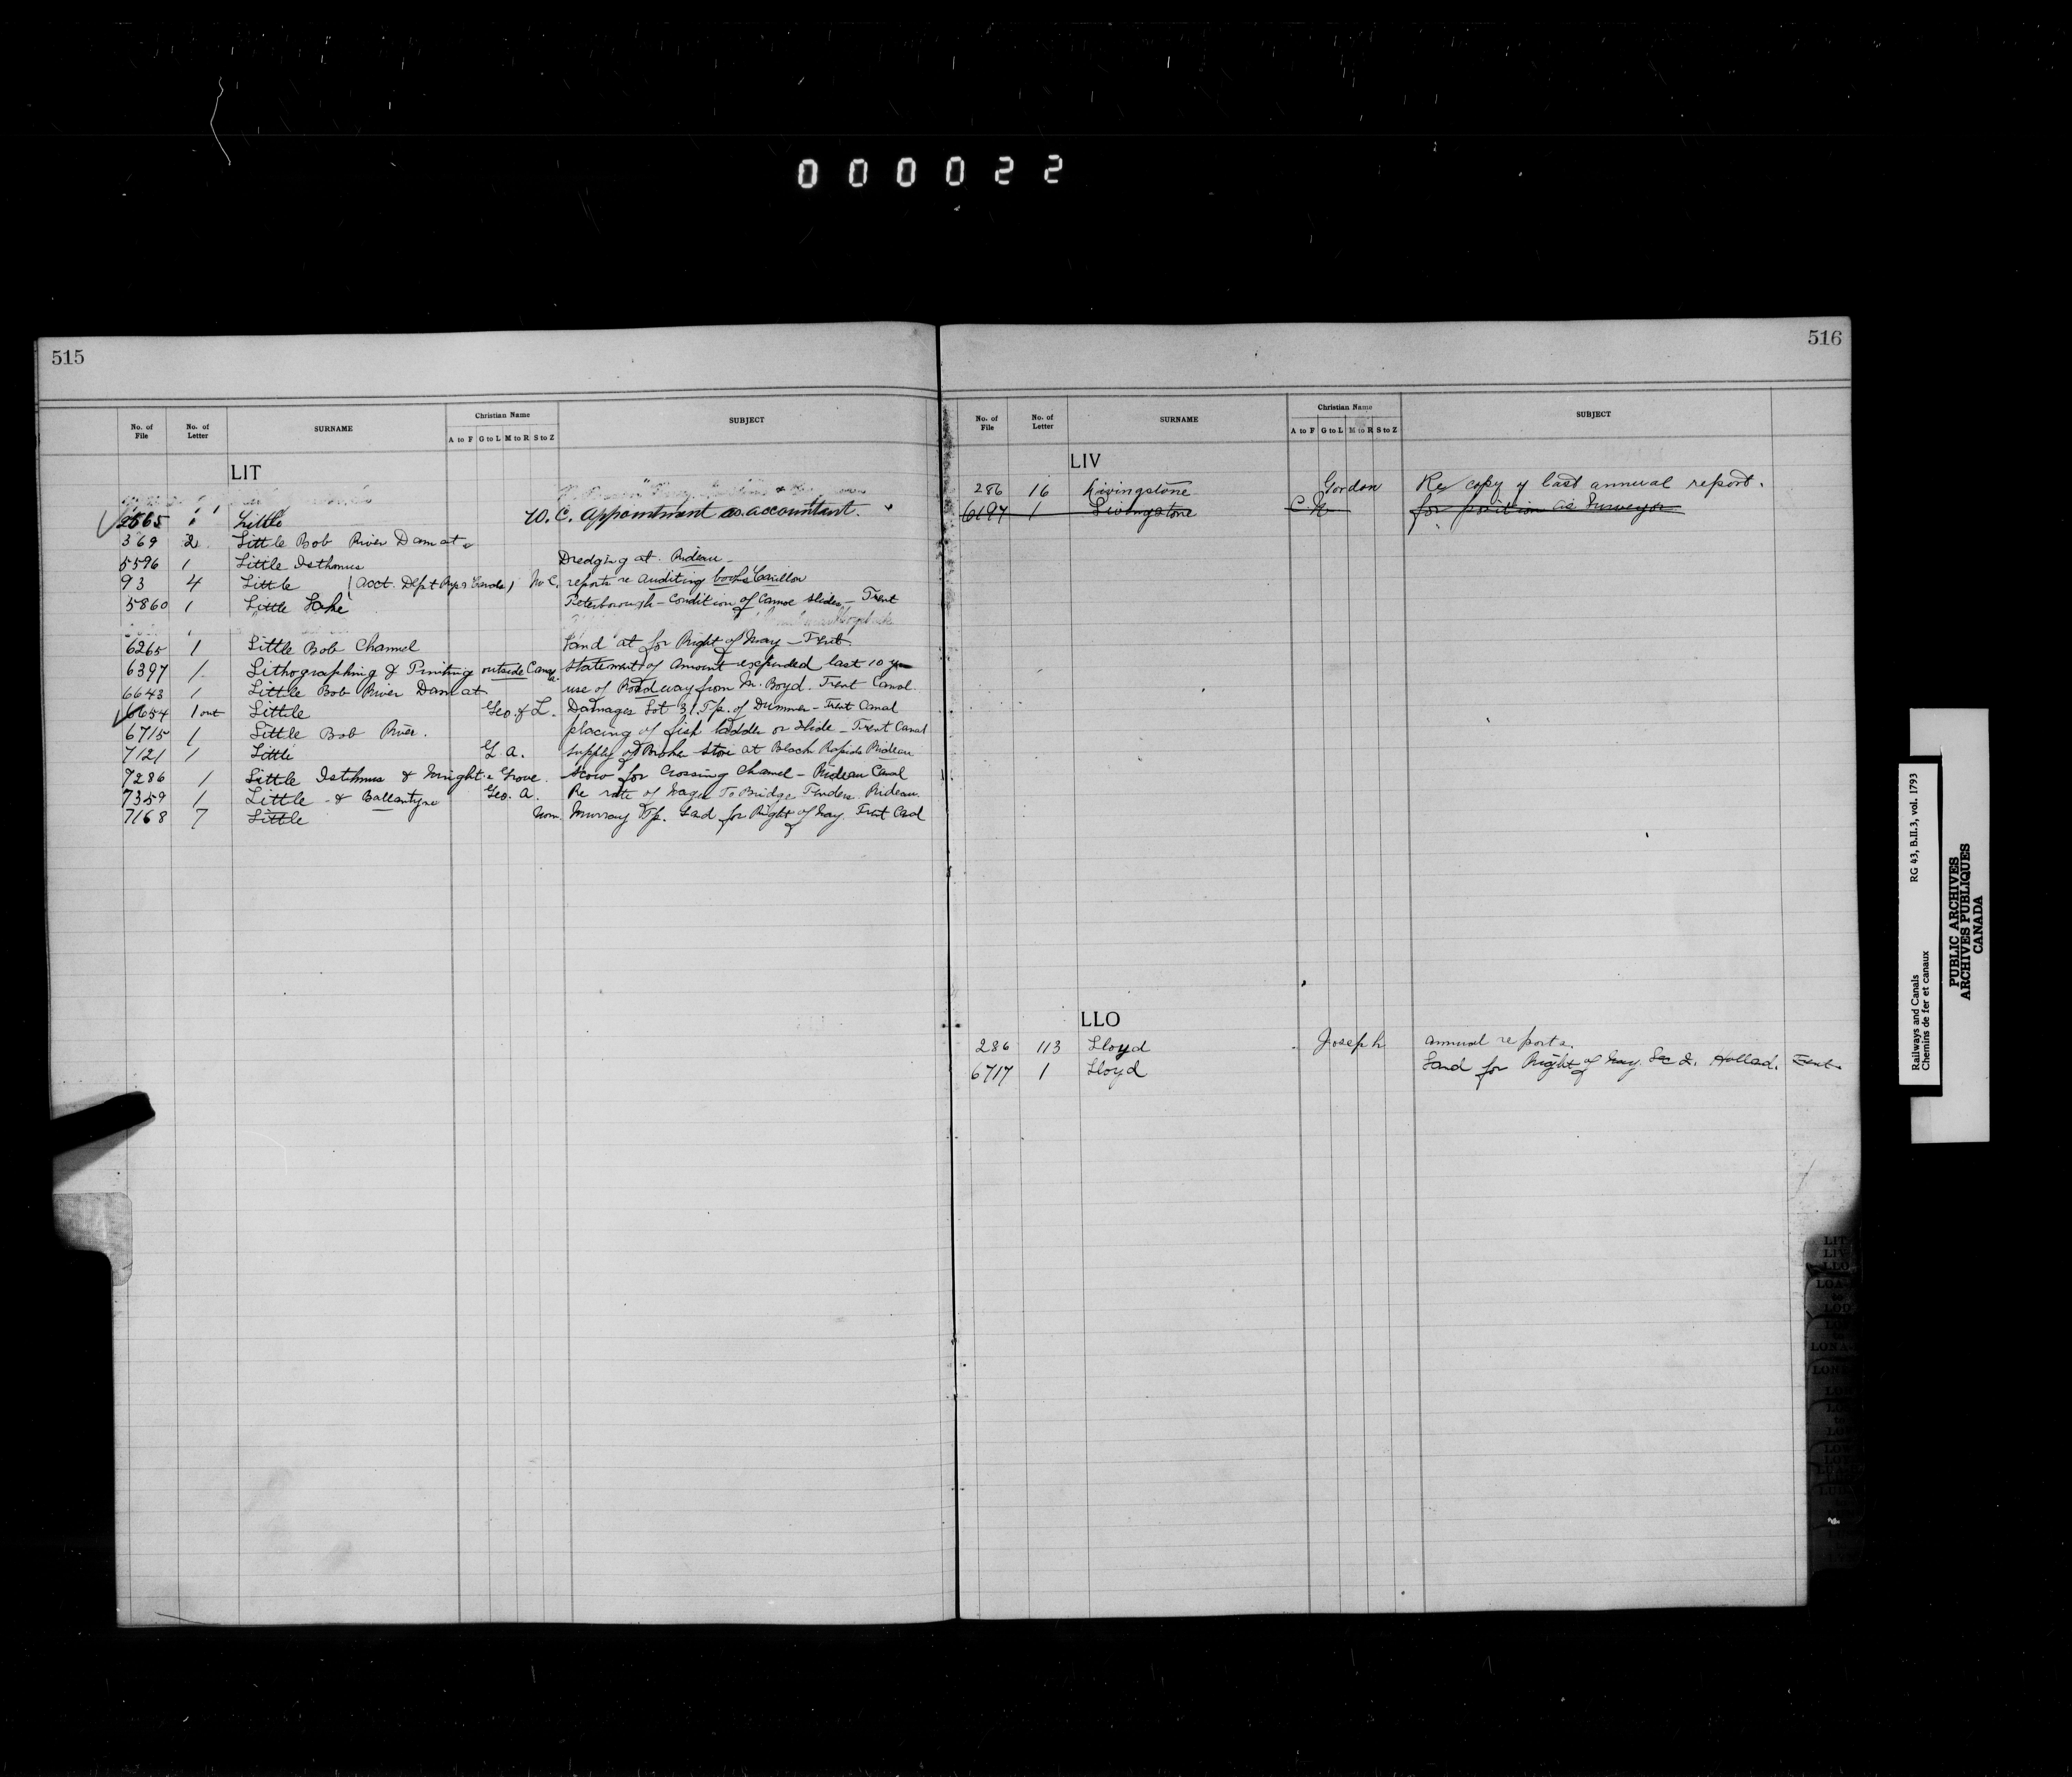 000022
515
No. of File No. of Letter SURNAME Christian Name A to F G to L M to R S to Z SUBJECT
LIT
2565 1 Little W. C. Appointment as accountant.
369 2 Little Bob River Dam at
5596 1 Little Isthmus Dredging at Rideau
93 4 Little (Acct. Dept Rys & Canals) W. C. reports re auditing books Carillon
5860 1 Little Lake Peterborough - Condition of Canoe slides - Trent
6265 1 Little Bob Channel Land at for Right of Way - Trent
6397 1 Lithographing & Printing outside Statement of Amount expended last 10 yrs
6643 1 Little Bob River Dam at use of Roadway from M. Boyd. Trent Canal.
6654 1 out Little Geo. & L. Damages Lot 31. Tp. of Dummer - Trent Canal
6715 1 Little Bob River. placing of fish ladder or slide - Trent Canal
7121 1 Little G. A. Supply of Broken stone at Black Rapids Rideau
7286 1 Little Isthmus & Wright's Grove. Scow for Crossing Channel - Rideau Canal
7359 1 Little & Ballantyne Geo. A. Re rate of Wages To Bridge Tenders Rideau.
7168 7 Little Wm. Murray Tp. Land for Right of Way. Trent Canal
516
No. of File No. of Letter SURNAME Christian Name A to F G to L M to R S to Z SUBJECT
LIV
286 16 Livingstone Gordon Re copy of last annual report.
6197 1 Livingstone C. for position as Surveyor
LLO
286 113 Lloyd Joseph annual reports.
6717 1 Lloyd Land for Right of Way. Sec 2. Holland. Trent
Railways and Canals RG 43, B.II.3, vol. 1793
Chemins de fer et canaux
PUBLIC ARCHIVES
ARCHIVES PUBLIQUES
CANADA
LIT
LIV
LLO
LOA
to
LOD
LONA